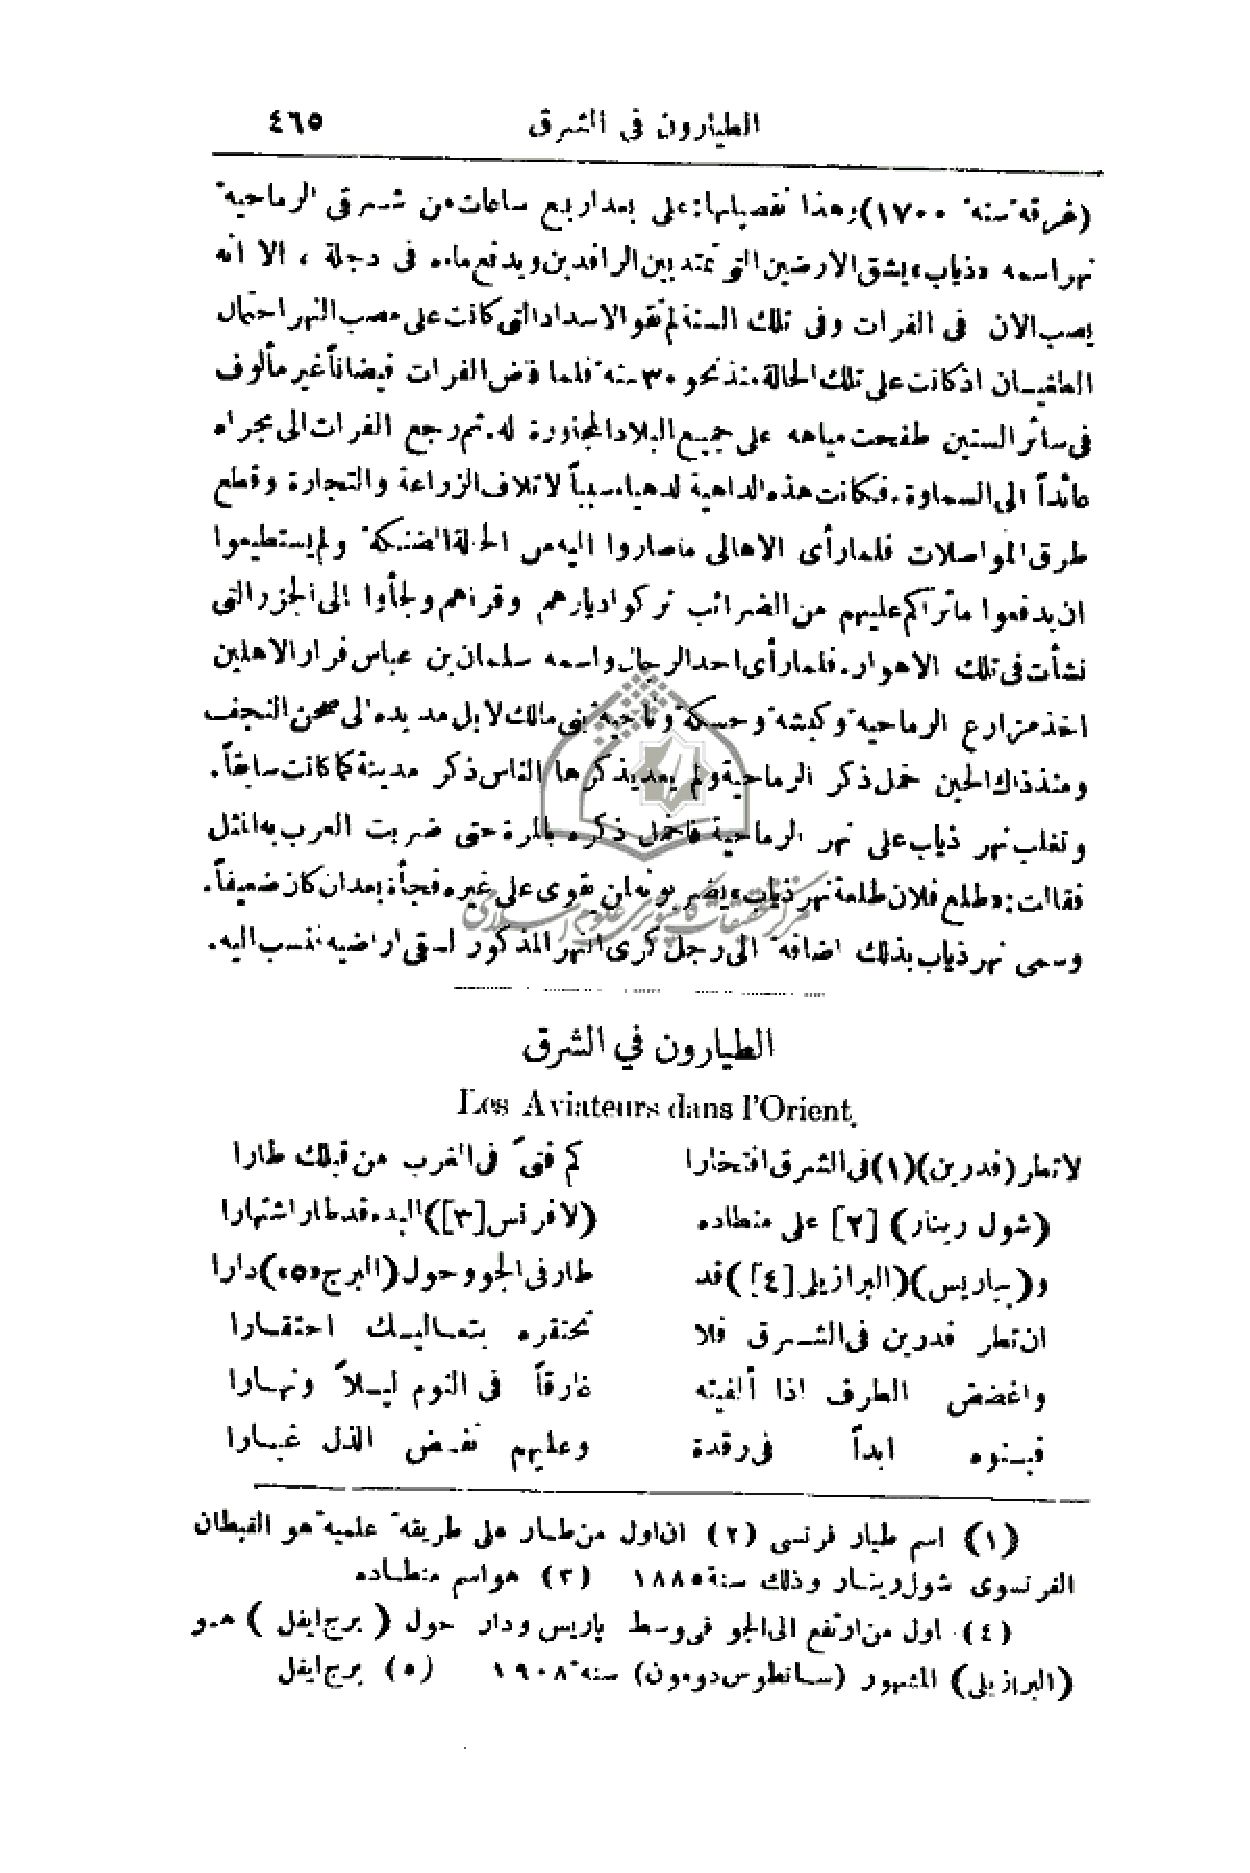 الطيارون في الشرق ٤٦٥
(غرقة سنة ١٧٠٠) وهذا تفصيلها: على بعد اربع ساعات من شرقي الرماحية
نهر اسمه «ذياب» يشق الارضين التي تمتد بين الرافدين ويدفع ماءه في دجلة ، الا انه
يصب الان في الفرات وفي تلك السنة لم تقو الاسداد التي كانت على مصب النهر احتمال
الطغيان اذ كانت على تلك الحالة منذ نحو ٣٠ سنة فلما فاض الفرات فيضاناً غير مألوف
في سائر السنين طفحت مياهه على جميع البلاد المجاورة له. ثم رجع الفرات الى مجراه
عائداً الى السماوة. فكانت هذه الداهية الدهياء سبباً لاتلاف الزراعة والتجارة وقطع
طرق المواصلات فلما رأى الاهالى ما صاروا اليه من الحالة الضنكة ولم يستطيعوا
ان يدفعوا ما تراكم عليهم من الضرائب تركوا ديارهم وقراهم ولجأوا الى الجزر التي
نشأت في تلك الاهوار. فلما رأى احد الرجال واسمه سلمان بن عباس فرار الاهلين
اخذ مزارع الرماحية وكبشة وحسكة وناحية بني مالك لا بل مد يده الى صحن النجف
ومنذ ذاك الحين خمل ذكر الرماحية ولم يعد يذكرها الناس ذكر مدينة كما كانت سابقاً.
وتغلب نهر ذياب على نهر الرماحية فاخمل ذكره بالمرة حتى ضربت العرب به المثل
فقالت: «طلع فلان طلعة نهر ذياب» يضربونه لمن يقوى على غيره فجأة بعد ان كان ضعيفاً.
وسمى نهر ذياب بذلك اضافة الى رجل كرى النهر المذكور لسقي اراضيه فنسب اليه.
الطيارون في الشرق
Les Aviateurs dans l'Orient.
لا تطر (فدرين) (١) في الشرق افتخارا كم فتىً في الغرب من قبلك طارا
(شول رينار) [٢] على منطاده (لا فرنس [٣]) البدء قد طار اشتهارا
و(بباريس) (البرازيلي [٤]) قد طار في الجو وحول (البرج «٥») دارا
ان تطر فدرين في الشرق فلا تحتقره بتعاليك احتقارا
واغضض الطرف اذا ألفيته غارقاً في النوم ليلاً ونهارا
فبنوه ابداً في رقدة وعليهم نفض الذل غبارا
(١) اسم طيار فرنسي (٢) ان اول من طار على طريقة علمية هو القبطان
الفرنسوي شول رينار وذلك سنة ١٨٨٥ (٣) هو اسم منطاده
(٤) اول من ارتفع الى الجو في وسط باريس ودار حول (برج ايفل) هو
(البرازيلي) المشهور (سانطوس دومون) سنة ١٩٠٨ (٥) برج ايفل
مركز تحقيقات كامپيوترى علوم اسلامى